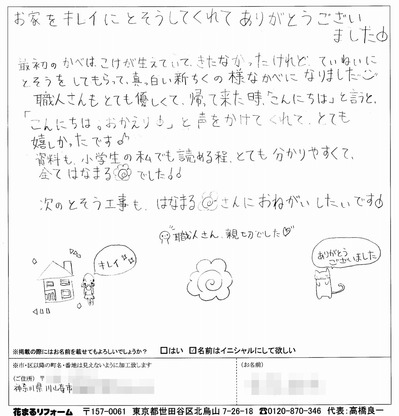 お家をキレイにとそうしてくれてありがとうござい
ました
最初のかべは、こけが生えていて、きたなかったけれど、ていねいに
とそうをしてもらって、真っ白い新ちくの様なかべになりました
職人さんもとても優しくて、帰って来た時、「こんにちは」と言うと、
「こんにちは。おかえり」と声をかけてくれて、とても
嬉しかったです
資料も、小学生の私でも読める程、とても分かりやすくて、
全てはなまるでした
次のとそう工事も、はなまるさんにおねがいしたいです
職人さん、親切でした
キレイ
ありがとう
ございました
※掲載の際にはお名前を載せてもよろしいでしょうか? □はい ☑名前はイニシャルにして欲しい
※市・区以降の町名・番地は見えないように加工致します
(ご住所) 〒
(お名前)
神奈川県 川崎市
花まるリフォーム 〒157-0061 東京都世田谷区北烏山7-26-18 ☎0120-870-346 代表:高橋良一